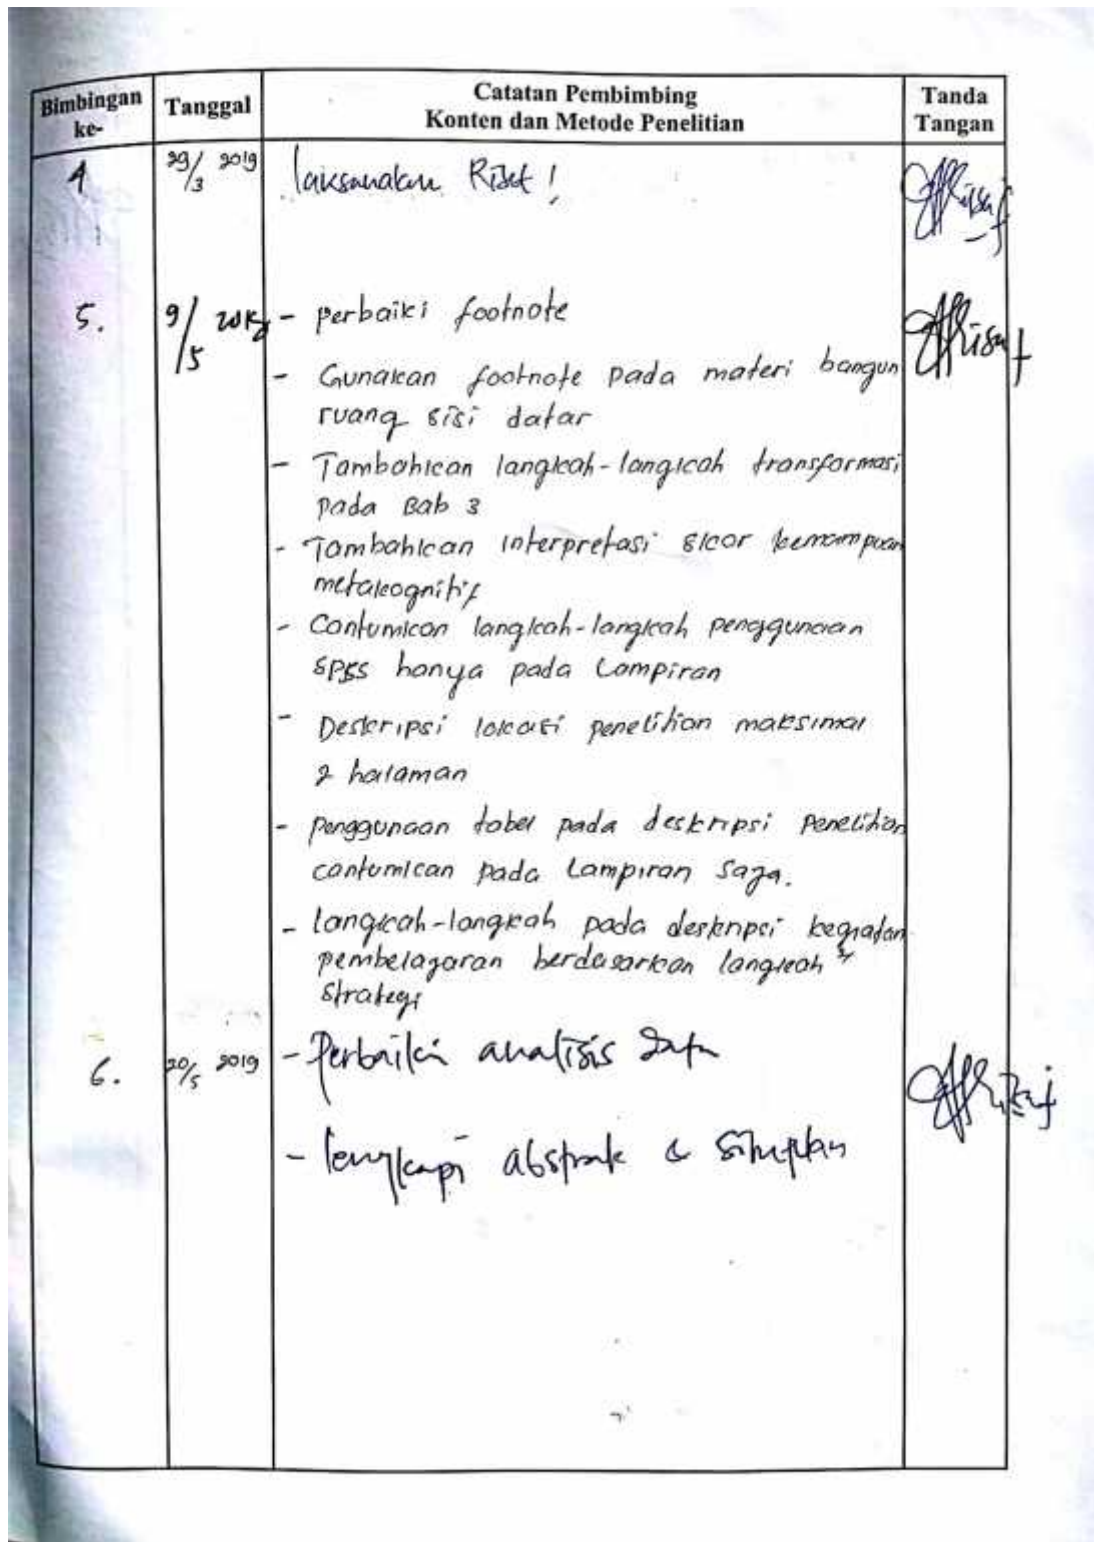 Bimbingan ke-
Tanggal
Catatan Pembimbing
Konten dan Metode Penelitian
Tanda Tangan
4
29/3 2019
laksanakan Riset !
5.
9/5
- perbaiki footnote
- Gunakan footnote pada materi bangun
ruang sisi datar
- Tambahkan langkah-langkah transformasi
pada Bab 3
- Tambahkan interpretasi skor kemampuan
metakognitif
- Cantumkan langkah-langkah penggunaan
SPSS hanya pada Lampiran
- Deskripsi lokasi penelitian maksimal
2 halaman
- penggunaan tabel pada deskripsi penelitian
cantumkan pada Lampiran saja.
- langkah-langkah pada deskripsi kegiatan
pembelajaran berdasarkan langkah²
strategi
6.
20/5 2019
- Perbaiki analisis data
- lengkapi abstrak & simpulan